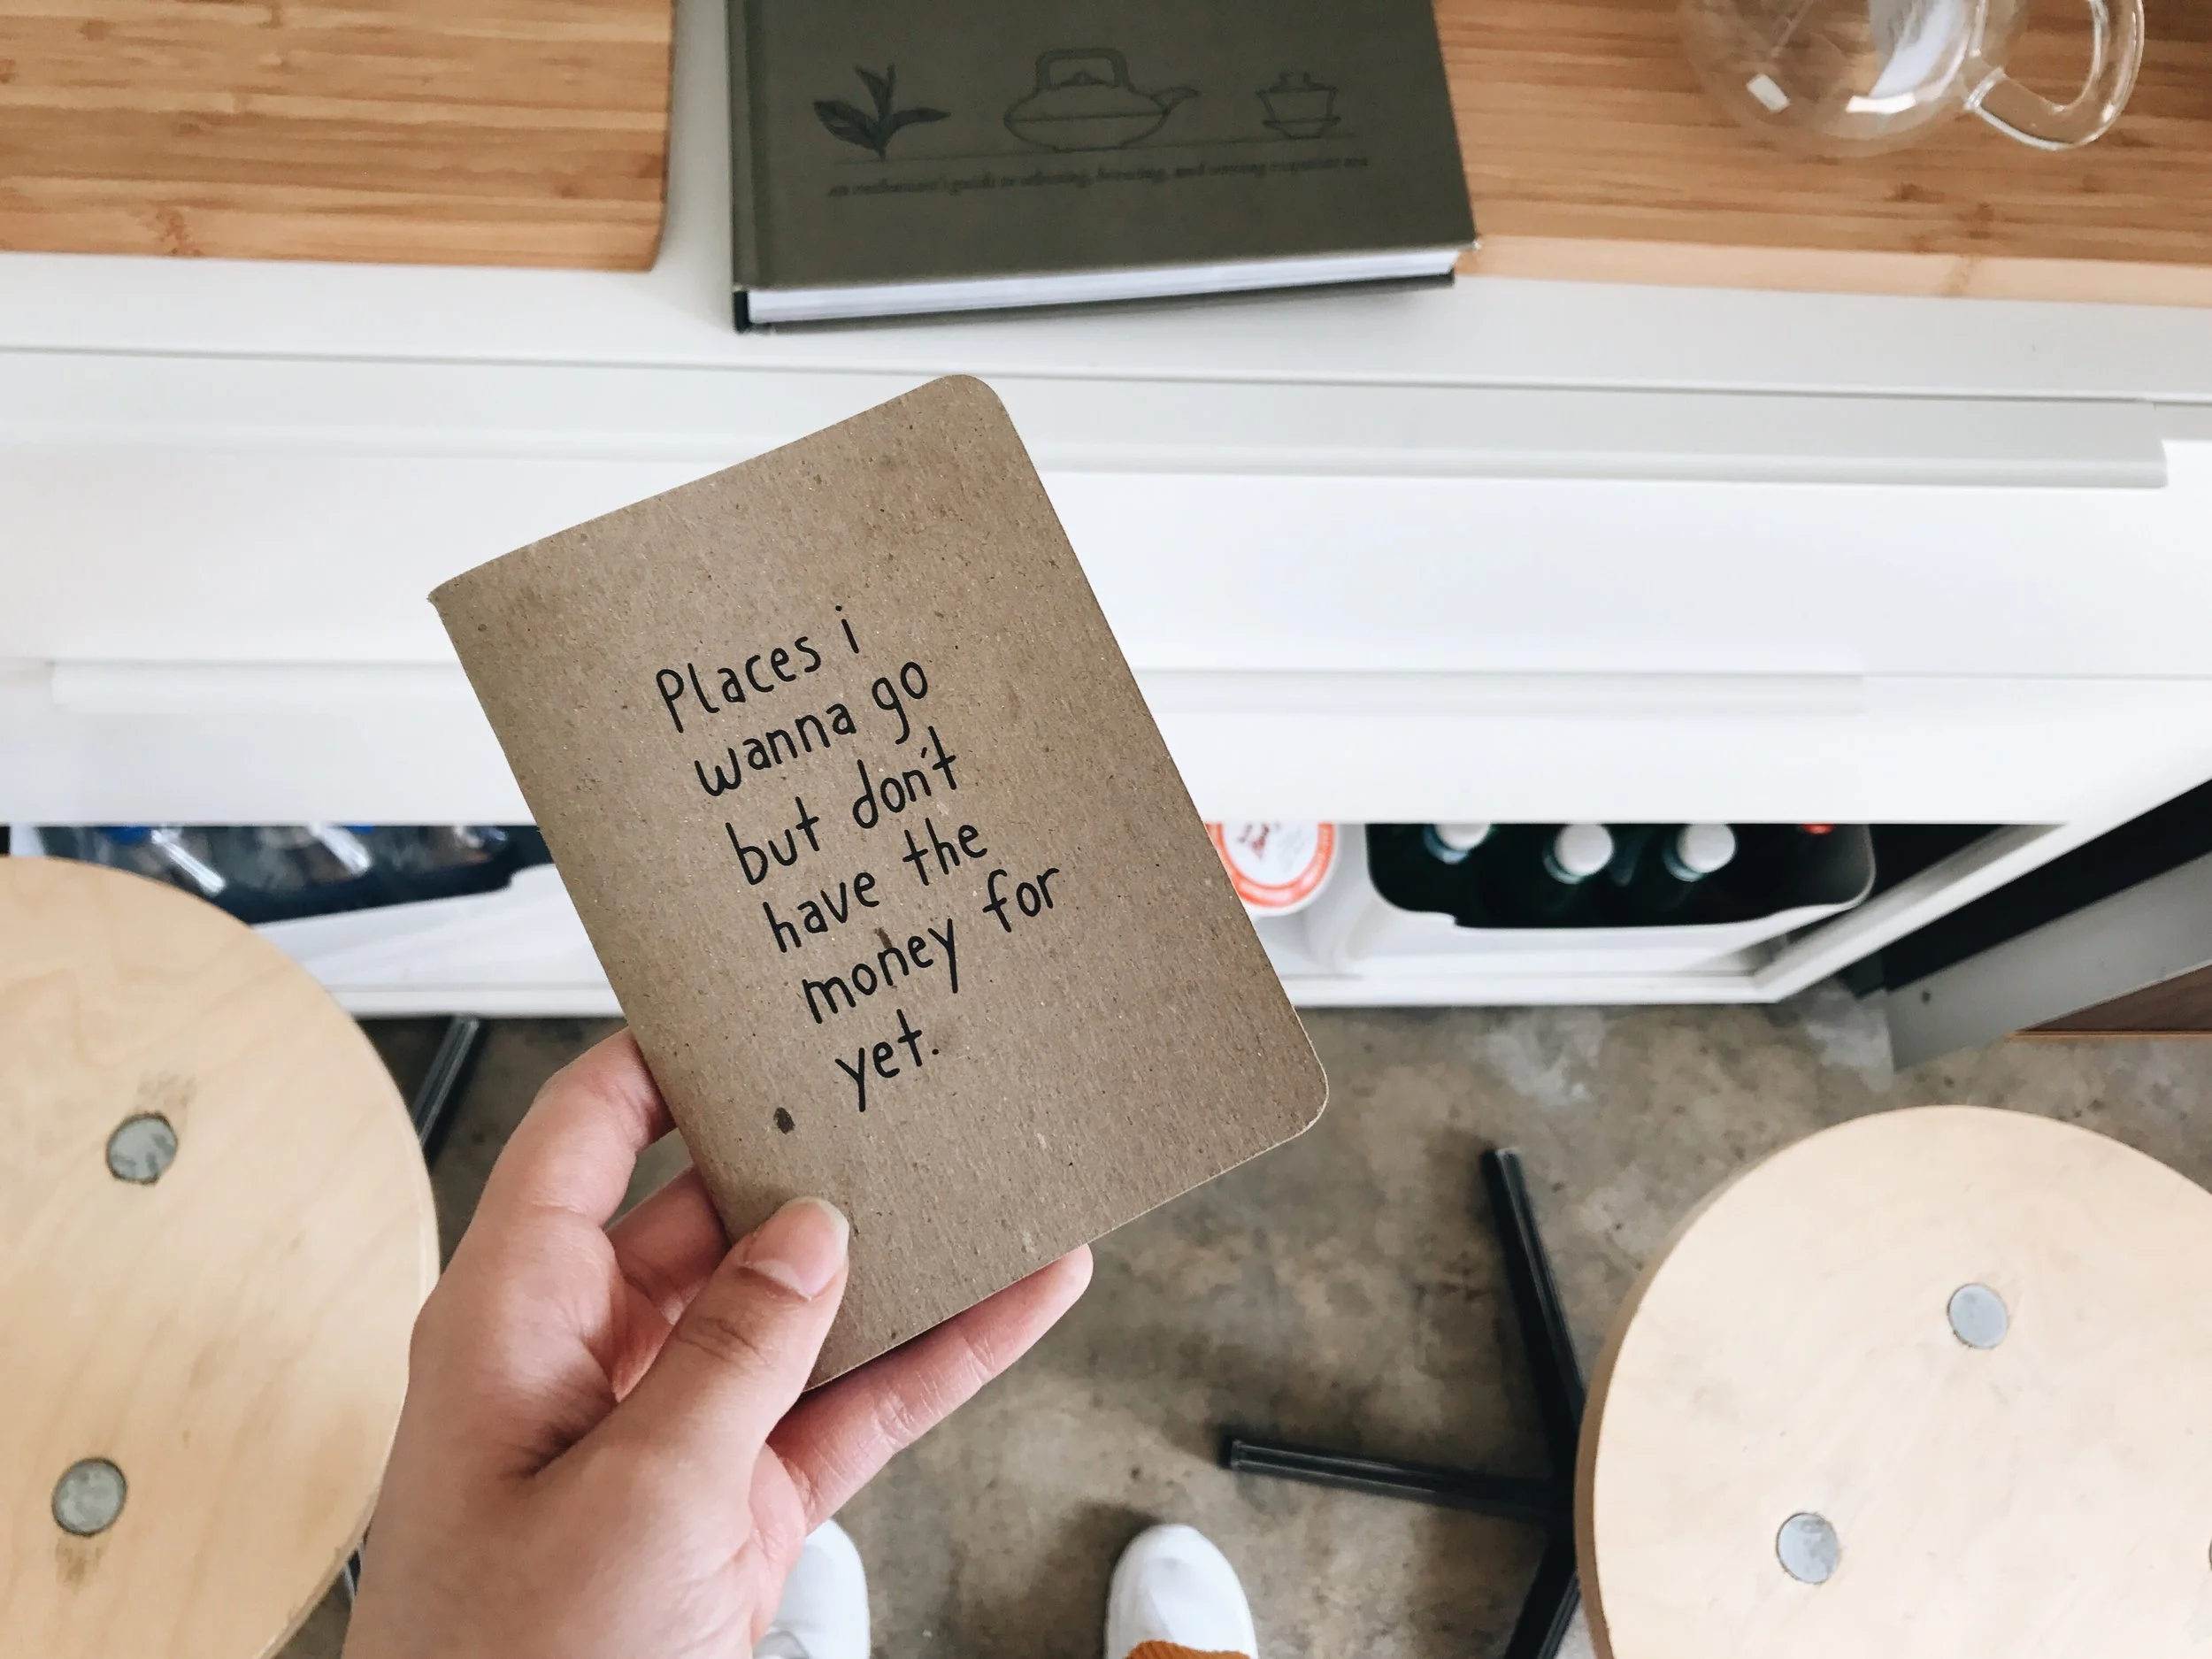 an enthusiast's guide to selecting, brewing, and serving exquisite tea
Places i
wanna go
but don't
have the
money for
yet.